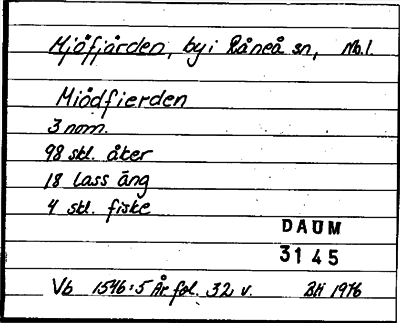 Mjöfjärden, by i Råneå sn, Nb.l.
Miödfierden
3 nom.
98 skl. åker
18 lass äng
4 skl. fiske
DAUM
3145
Vb 1546:5 År fol. 32 v. BH 1976